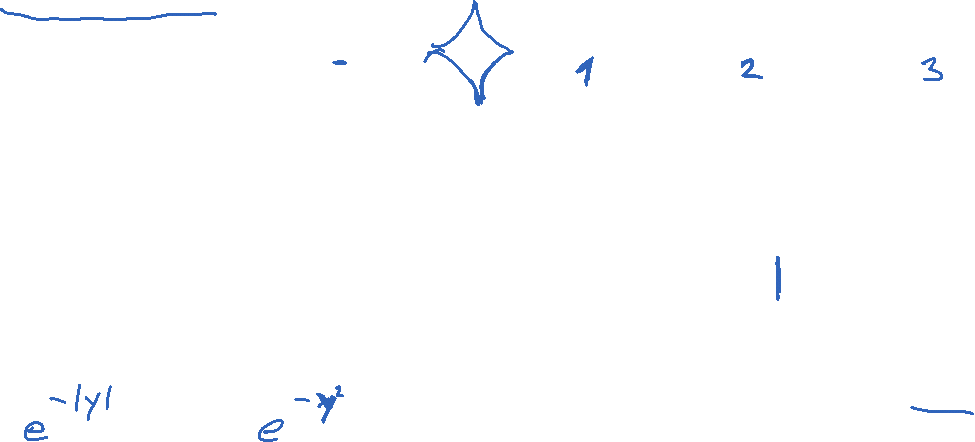 - 1 2 3
e^{-|y|} e^{-y^2}